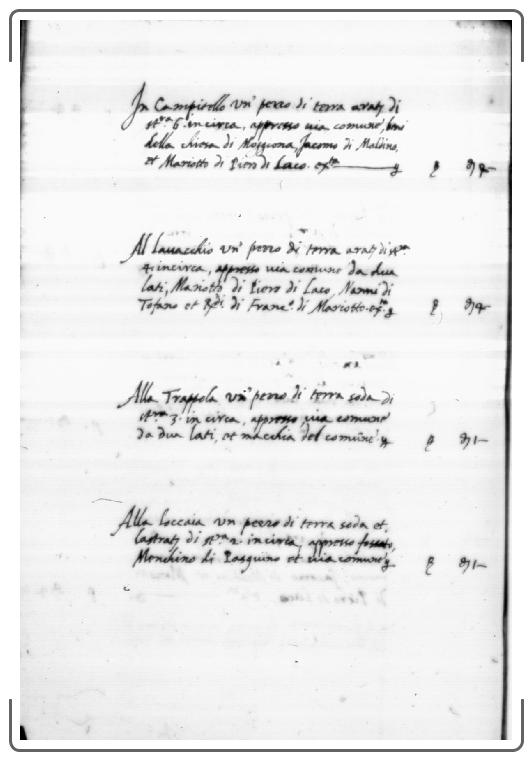 In Campitello un' pezzo di terra arat.
st.ra 6. in circa, appresso via comune, beni
della chiesa di Moggiona, Jacomo di Maldino,
et Mariotto di Piero di Laco. ex.ta
Al Lavacchio un' pezzo di terra arat.
4. incirca, appresso via comune da dua
lati, Mariotto di Piero di Laco, Nanni di
Tofano et Rdi di Franc.o di Mariotto. ex.ta
Alla Trappola un' pezzo di terra soda di
st.ra 3. in circa, appresso via comune
da dua lati, et macchia del comune
Alla Loccaia un pezzo di terra soda et
castrat. di st.ra 2. incirca, appresso fossato,
Menchino di Pasquino et via comune